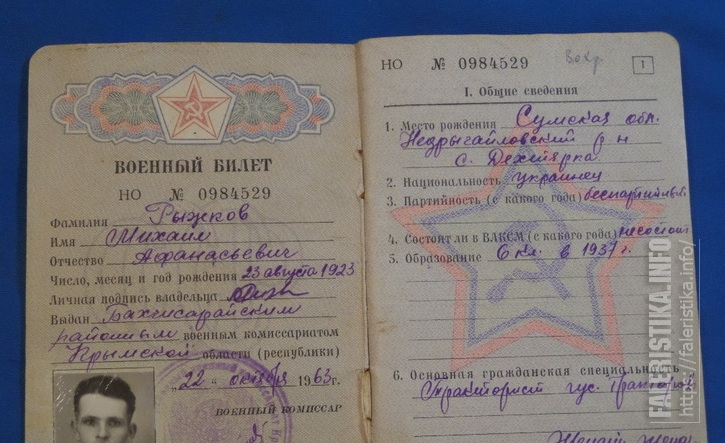 ВОЕННЫЙ БИЛЕТ
НО № 0984529
Фамилия Рыжков
Имя Михаил
Отчество Афанасьевич
Число, месяц и год рождения 23 августа 1923
Личная подпись владельца
Выдан Бахчисарайским
районным военным комиссариатом
Крымской области (республики)
"22" октября 1963 г.
ВОЕННЫЙ КОМИССАР
НО № 0984529
1
I. Общие сведения
1. Место рождения Сумская обл.
Недрыгайловский р-н
с. Дехтярка
2. Национальность украинец
3. Партийность (с какого года) беспартийный
4. Состоит ли в ВЛКСМ (с какого года) не состоит
5. Образование 6 кл. в 1937 г.
6. Основная гражданская специальность
Тракторист гус. тракторов
FALERISTIKA.INFO
http://faleristika.info/